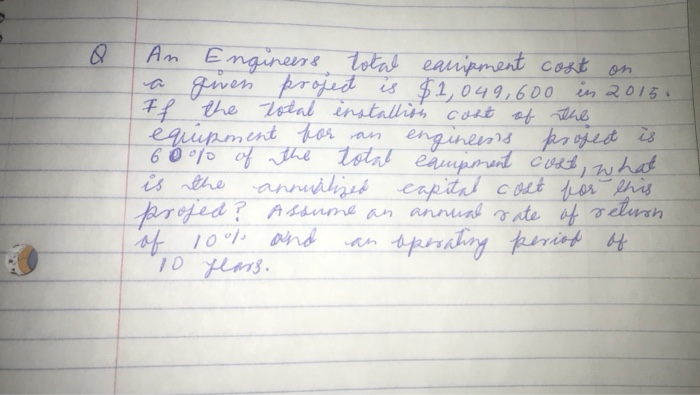 Q An Engineers total equipment cost on
a given project is $1,049,600 in 2015.
If the total installion cost of the
equipment for an engineers project is
60% of the total equipment cost, what
is the annualized capital cost for this
project? Assume an annual rate of return
of 10% and an operating period of
10 years.